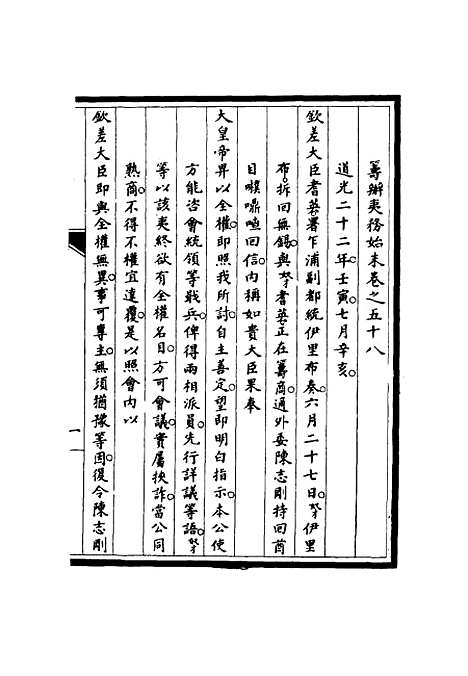 籌辦夷務始末卷之五十八
道光二十二年。壬寅。七月辛亥。
欽差大臣耆英署乍浦副都統伊里布奏。六月二十七日。奴才伊里
布。拆回無錫。與奴才耆英正在籌商。適外委陳志剛持回酋
目㗎嘣喳回信。內稱如貴大臣果奉
大皇帝畀以全權。即照我所討自主善定。望即明白指示。本公使
方能咨會統領等戢兵。俾得兩相派員。先行詳議等語。奴才
等以該夷終欲有全權名目。方可會議。實屬挾詐。當公同
熟商。不得不權宜達覆。是以照會內以
欽差大臣即與全權無異。事可專主。無須猶豫等因。復令陳志剛
一